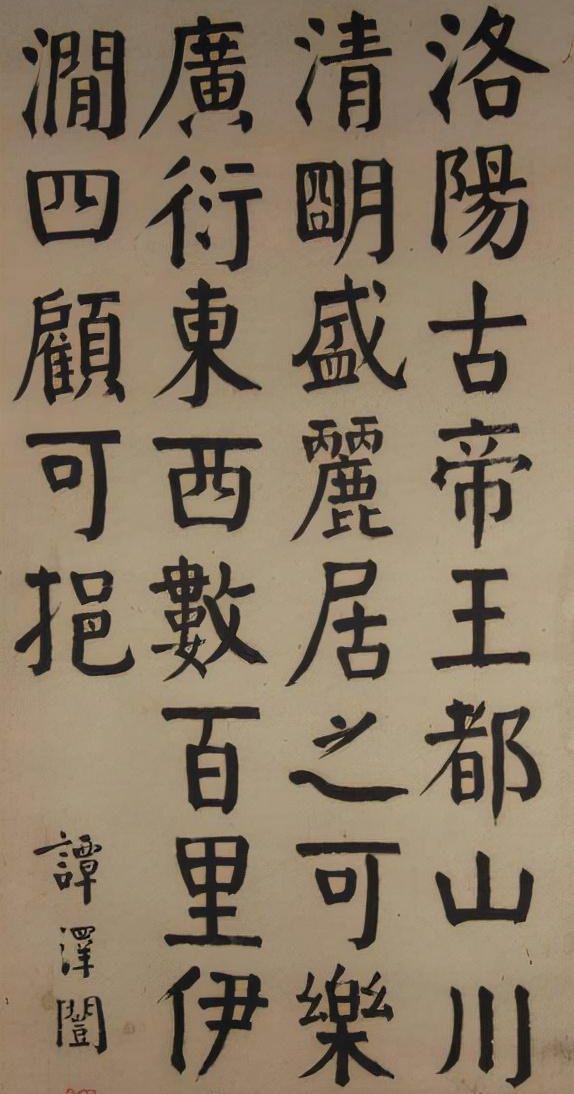 洛陽古帝王都山川
清朙盛麗居之可樂
廣衍東西數百里伊
澗四顧可挹
譚澤闓